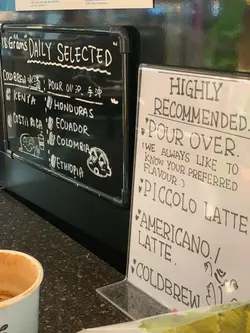 18 Grams DAILY SELECTED
COLDBREW 冰滴
KENYA
COSTA RICA
POUR OVER 手沖
HONDURAS
ECUADOR
COLOMBIA
ETHIOPIA
HIGHLY
RECOMMENDED
POUR OVER.
(WE ALWAYS LIKE TO
KNOW YOUR PREFERRED
FLAVOUR.)
PICCOLO LATTE
AMERICANO/
LATTE.
COLDBREW